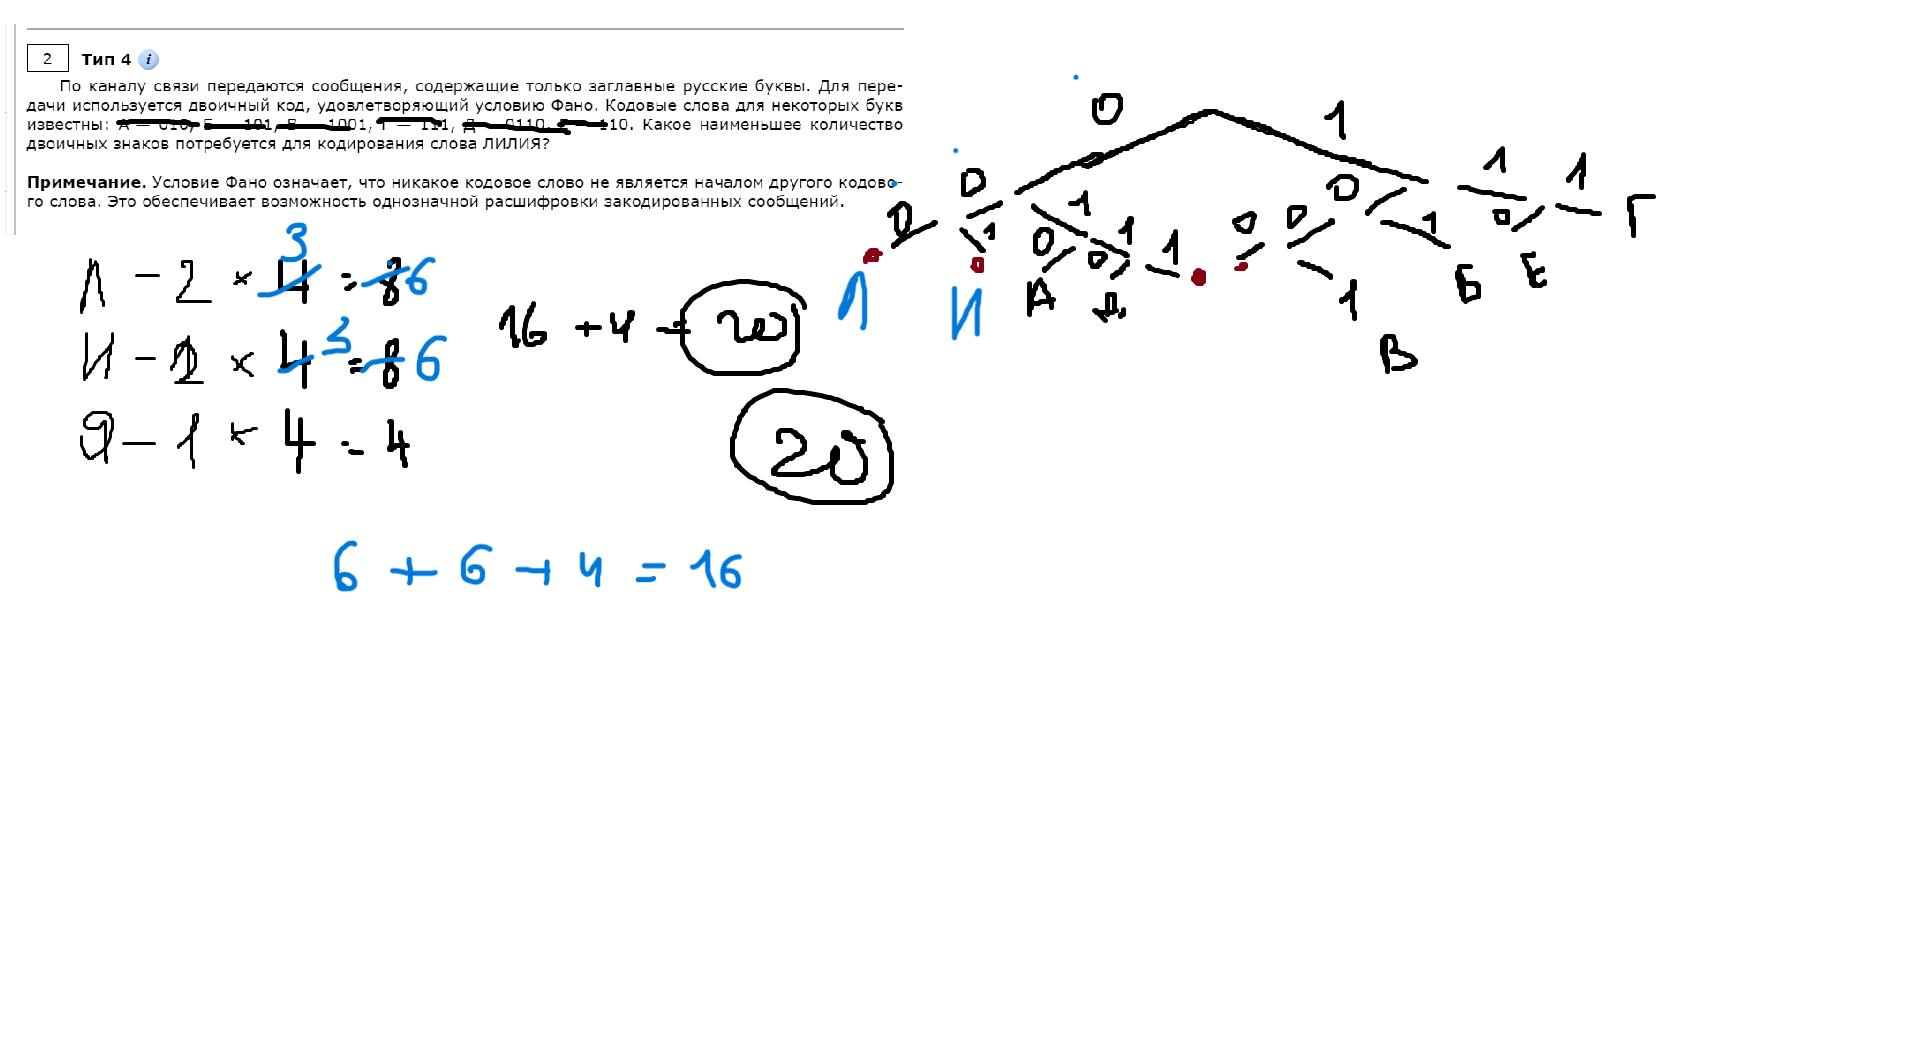 2 Тип 4 i
По каналу связи передаются сообщения, содержащие только заглавные русские буквы. Для пере-
дачи используется двоичный код, удовлетворяющий условию Фано. Кодовые слова для некоторых букв
известны: А — 010, Б — 101, В — 1001, Г — 111, Д — 0110, 110. Какое наименьшее количество
двоичных знаков потребуется для кодирования слова ЛИЛИЯ?
Примечание. Условие Фано означает, что никакое кодовое слово не является началом другого кодово-
го слова. Это обеспечивает возможность однозначной расшифровки закодированных сообщений.
0 1
0 1 0 1 1
0 1 0 1 1 0 0 1 0 Г
0 1 0 1
Л И А Д Б Е
В
Л - 2 × 4 3 = 8 6
И - 2 × 4 3 = 8 6
Я - 1 × 4 = 4
16 + 4 = 20
20
6 + 6 + 4 = 16